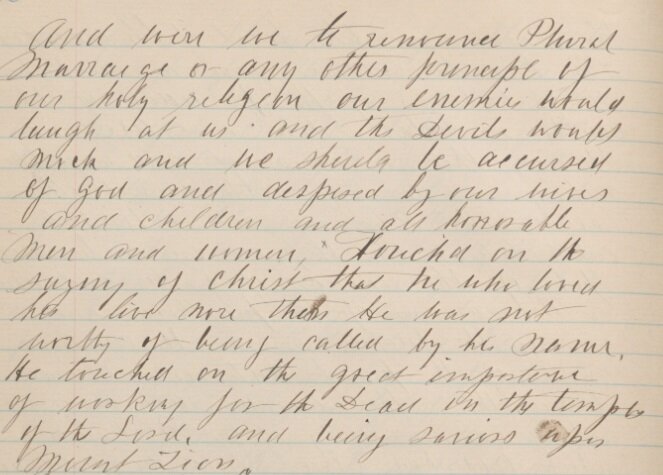 And were we to renounce Plural
Marraige or any other principe of
our holy religeon our enemies would
laugh at us and the Devils would
mock and we should be accursed
of God and despised by our wives
and children and all honorable
Men and women, Touched on the
saying of Christ that he who loved
his live more than He was not
worthy of being called by his name.
He touched on the great importance
of working for the Dead in the temple
of the Lord, and being saviors upon
Mount Zion.